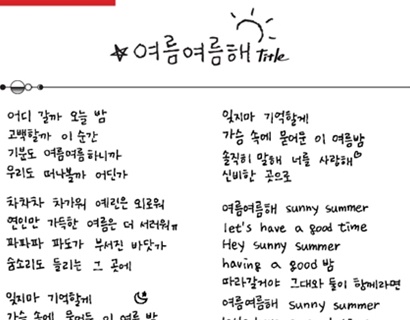 여름여름해 Title
어디 갈까 오늘 밤
고백할까 이 순간
기분도 여름여름하니까
우리도 떠나볼까 어딘가
차차차 차가워 예린은 외로워
연인만 가득한 여름은 더 서러워ㅠ
파파파 파도가 부서진 바닷가
숨소리도 들리는 그 곳에
잊지마 기억할게
가슴 속에 묻어둔 이 여름 밤
잊지마 기억할게
가슴 속에 묻어둔 이 여름밤
솔직히 말해 너를 사랑해
신비한 곳으로
여름여름해 sunny summer
let's have a good time
Hey sunny summer
having a good 밤
따라갈거야 그대와 둘이 함께라면
여름여름해 sunny summer